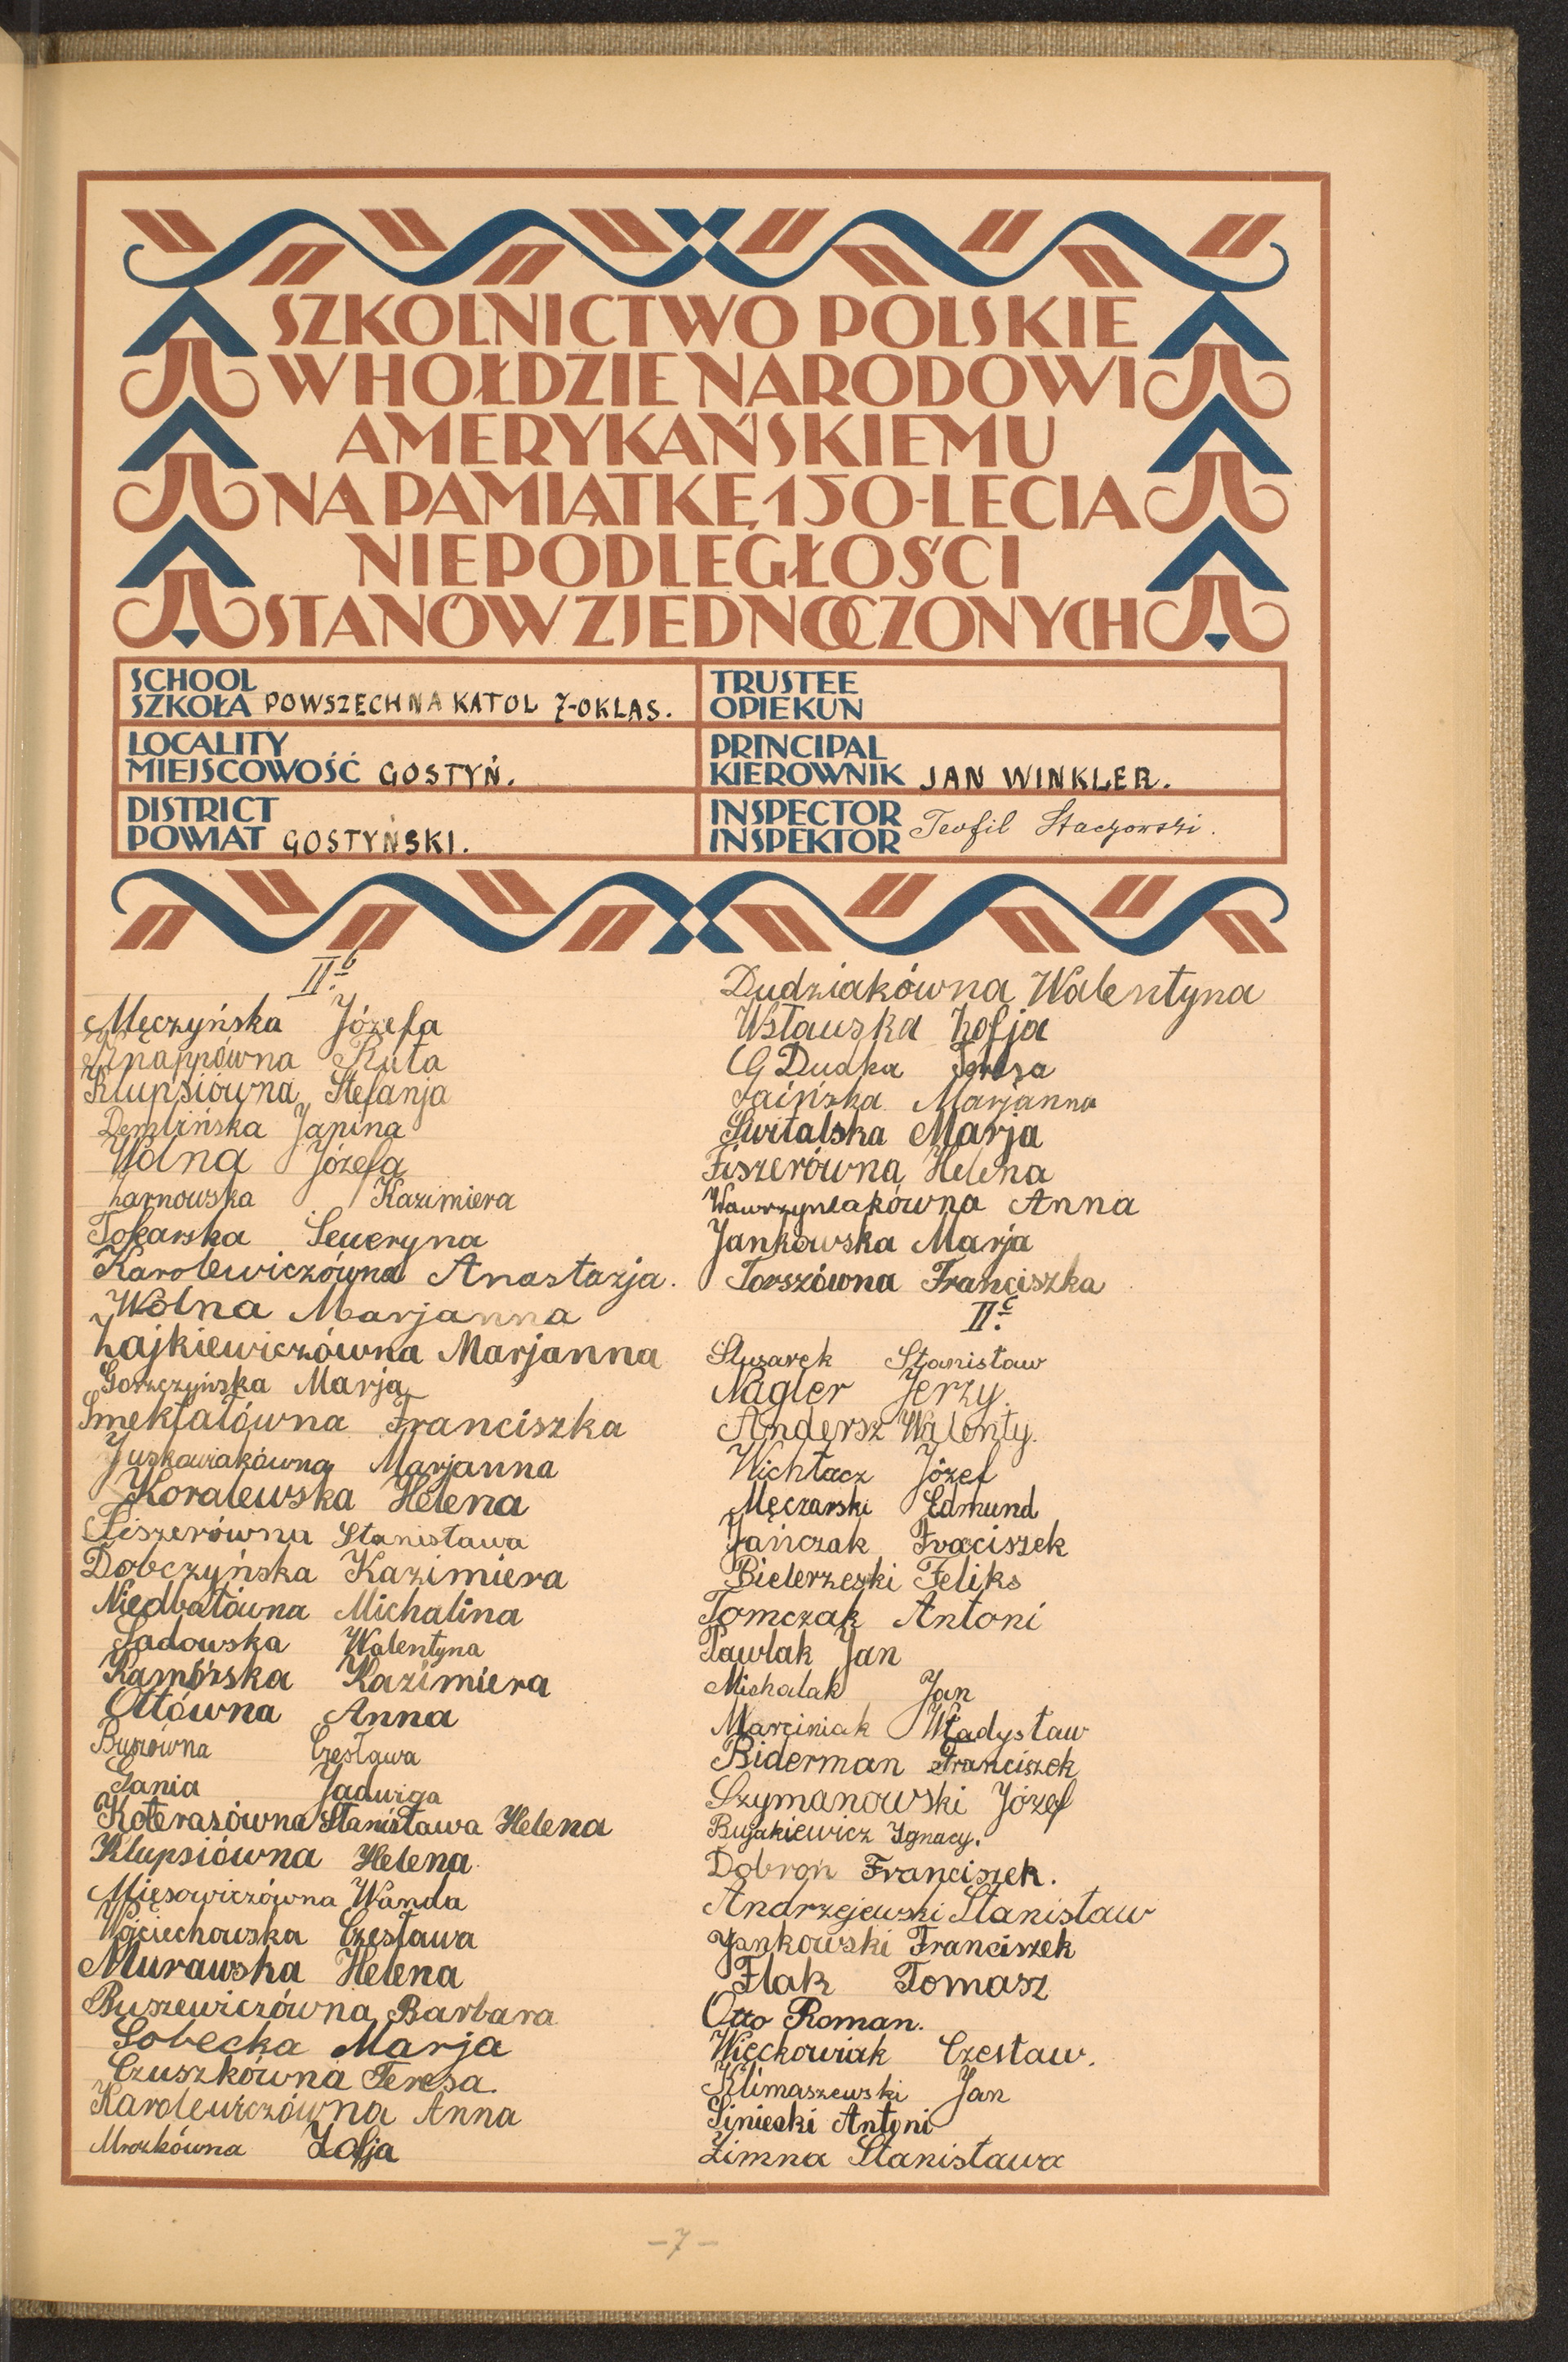 SZKOLNICTWO POLSKIE
W HOŁDZIE NARODOWI
AMERYKAŃSKIEMU
NA PAMIĄTKĘ 150-LECIA
NIEPODLEGŁOŚCI
STANÓW ZJEDNOCZONYCH
SCHOOL
SZKOŁA POWSZECHNA KATOL 7-OKLAS.
LOCALITY
MIEJSCOWOŚĆ GOSTYŃ.
DISTRICT
POWIAT GOSTYŃSKI.
TRUSTEE
OPIEKUN
PRINCIPAL
KIEROWNIK JAN WINKLER.
INSPECTOR
INSPEKTOR Teofil Staczowski.
II.b
Męczyńska Józefa
Knappówna Ruta
Klupsiówna Stefanja
Demlińska Janina
Wolna Józefa
Żarnowska Kazimiera
Tokarska Seweryna
Karolewiczówna Anastazja.
Wolna Marjanna
Zajkiewiczówna Marjanna
Gorzczyńska Marja
Smektałówna Franciszka
Juskowiakówna Marjanna
Koralewska Helena
Fiszerówna Stanisława
Dobczyńska Kazimiera
Niedbałówna Michalina
Sadowska Walentyna
Kazimiera
Ottówna Anna
Buszówna Czesława
Gania Jadwiga
Koterasówna Stanisława Helena
Klupsiówna Helena
Mięsowiczówna Wanda
Wojciechowska Czesława
Murawska Helena
Buszewiczówna Barbara
Sobecka Marja
Czuszkówna Teresa.
Karolewiczówna Anna
Mrozkówna Zofja
Dudziakówna Walentyna
Wsławska Zofja
Dudka Teresa
Marjanna
Świtalska Marja
Fiszerówna Helena
Wawrzyniakówna Anna
Jankowska Marja
Torszówna Franciszka
II.c
Ślusarek Stanisław
Nagler Jerzy.
Andersz Walenty.
Wichłacz Józef
Męczarski Edmund
Jańczak Fraciszek
Bielerzeski Feliks
Tomczak Antoni
Pawlak Jan
Michalak Jan
Marciniak Władysław
Biderman Franciszek
Szymanowski Józef
Bujakiewicz Ignacy.
Dobroń Franciszek.
Andrzejewski Stanisław
Jankowski Franciszek
Flak Tomasz
Otto Roman.
Więckowiak Czesław.
Klimaszewski Jan
Siniecki Antoni
Zimna Stanisława
-7-